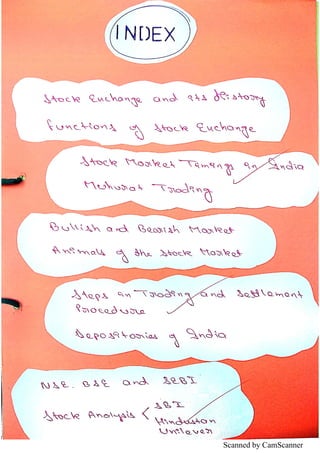 INDEX
Stock Exchange and its History
Functions of Stock Exchange
Stock Market Timings in India
Muhurat Trading
Bullish and Bearish Market
Animals of the Stock Market
Steps in Trading and Settlement
Procedure
Depositories of India
NSE, BSE and SEBI
Stock Analysis < SBI
Hindustan
Unilever
Scanned by CamScanner